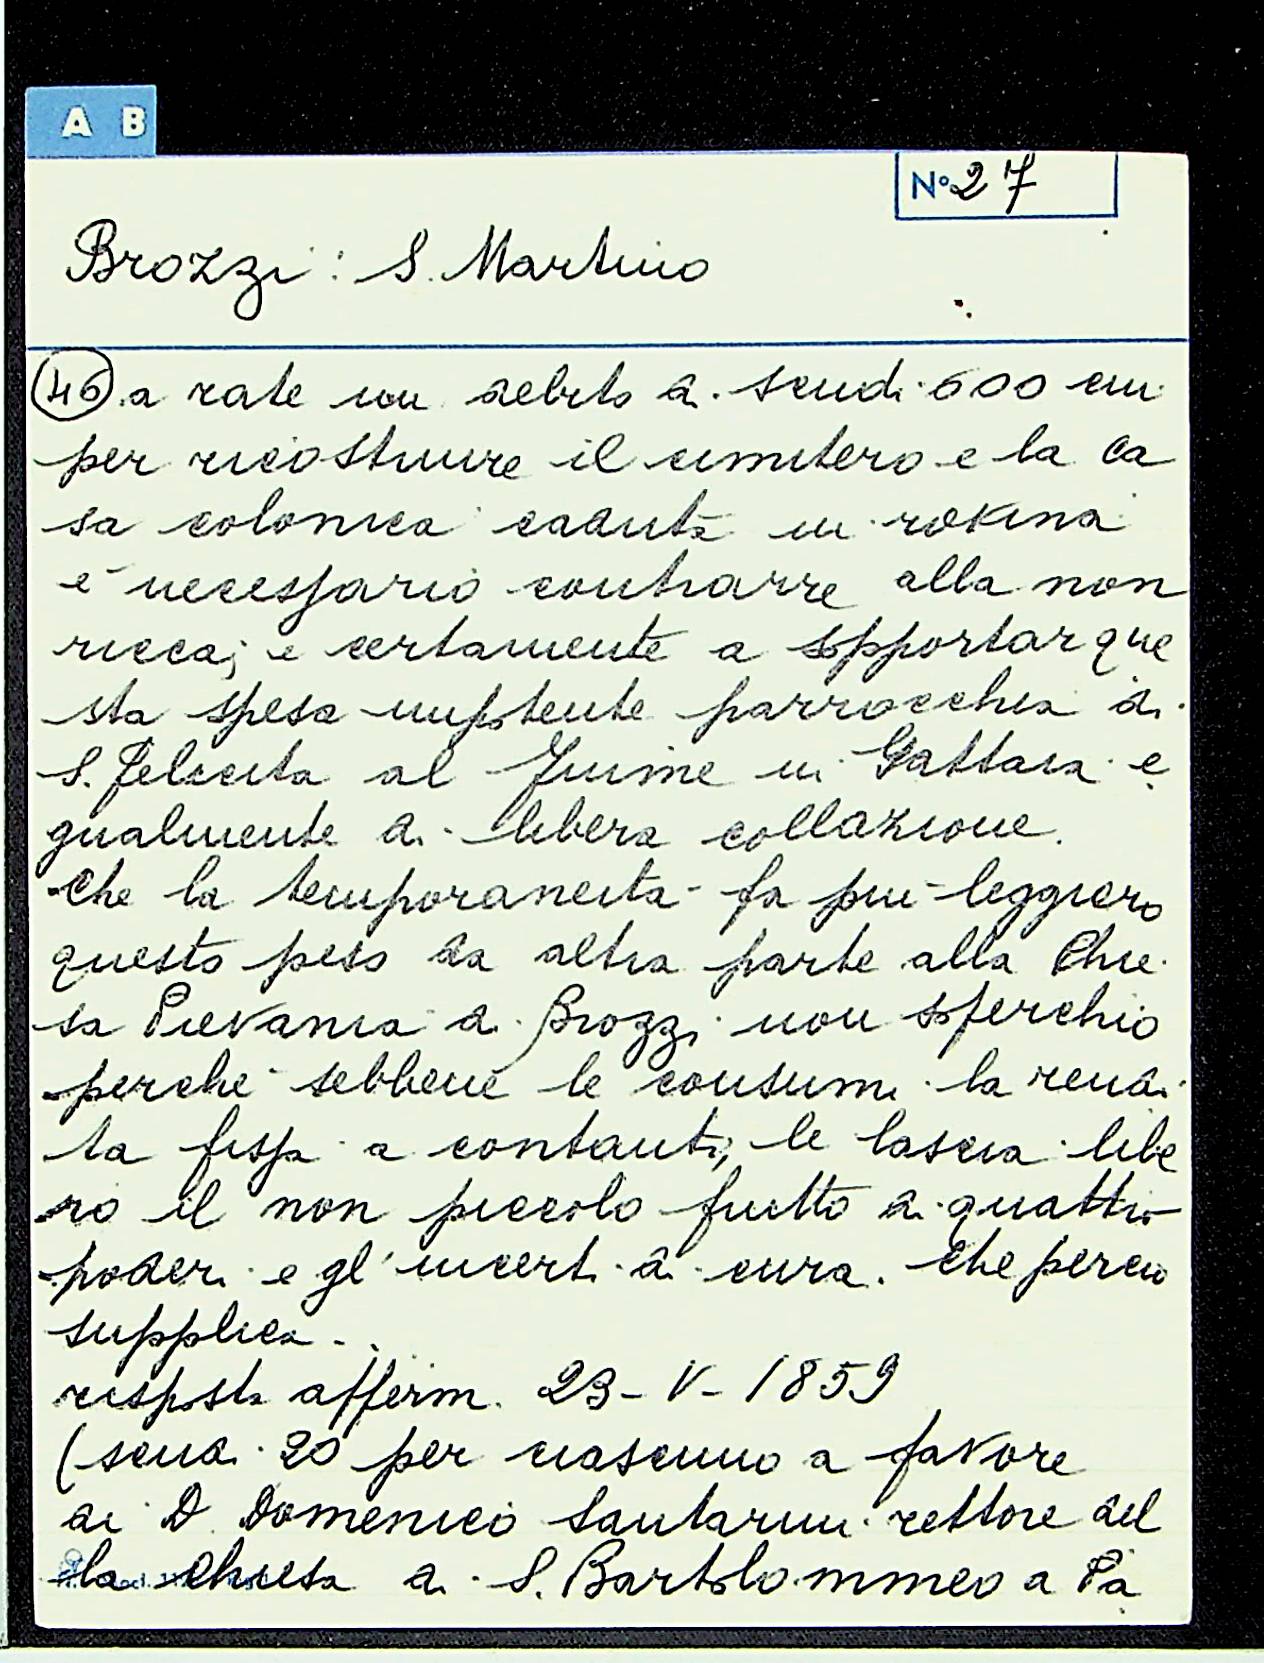 A B
Nº 27
Brozzi: S. Martino
(46) a rate un debito di scudi 600 cui
per ricostruire il cimitero e la ca
sa colonica caduta in rovina
è necessario contrarre alla non
ricca; e certamente a sopportar que
sta spesa impotente parrocchia di
S. Felicita al Fiume in Gattaia e
gualmente di libera collazione.
Che la temporaneità fa più leggiero
questo peso da altra parte alla Chie
sa Pievania di Brozzi non soferchio
perché sebbene le consumi la rendi
ta fissa a contanti, le lascia libe
ro il non piccolo frutto di quattro
poderi e gl'incerti di cura. Che perciò
supplica..
risposta afferm. 23-V-1859
(scudi 20 per ciascuno a favore
di D Domenico Santarini rettore del
la chiesa di S. Bartolommeo a Pa